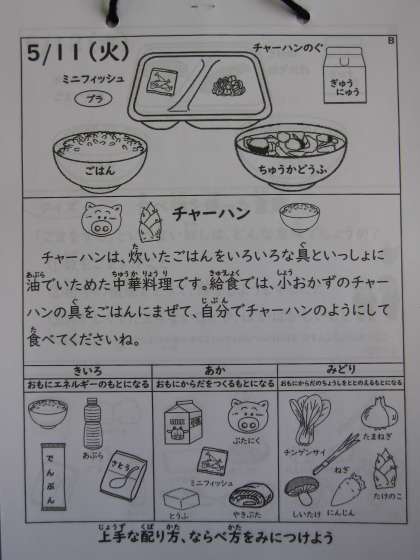 5/11(火)
B
チャーハンのぐ
ミニフィッシュ
プラ
ぎゅう
にゅう
ごはん
ちゅうかどうふ
チャーハン
チャーハンは、炊いたごはんをいろいろな具といっしょに
油でいためた中華料理です。給食では、小おかずのチャー
ハンの具をごはんにまぜて、自分でチャーハンのようにして
食べてくださいね。
きいろ
おもにエネルギーのもとになる
あぶら
でんぷん
さとう
あか
おもにからだをつくるもとになる
ぶたにく
ミニフィッシュ
とうふ
やきぶた
みどり
おもにからだのちょうしをととのえるもとになる
チンゲンサイ
たまねぎ
ねぎ
たけのこ
しいたけ
にんじん
上手な配り方、ならべ方をみにつけよう